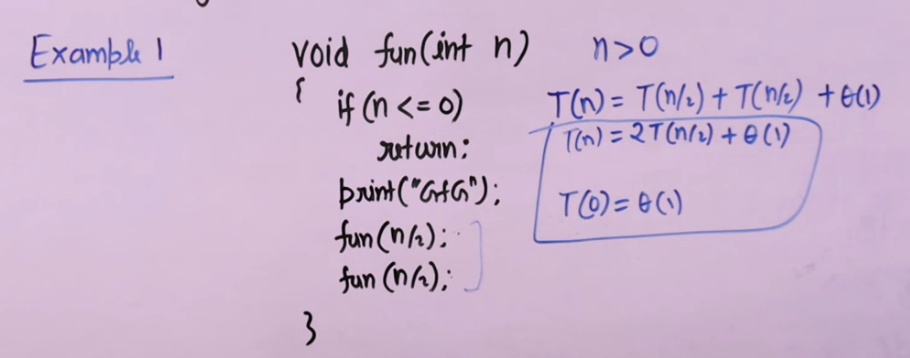 Example 1
void fun(int n)
{
if (n <= 0)
return;
print("GfG");
fun(n/2);
fun(n/2);
}
n>0
T(n) = T(n/2) + T(n/2) + θ(1)
T(n) = 2T(n/2) + θ(1)
T(0) = θ(1)